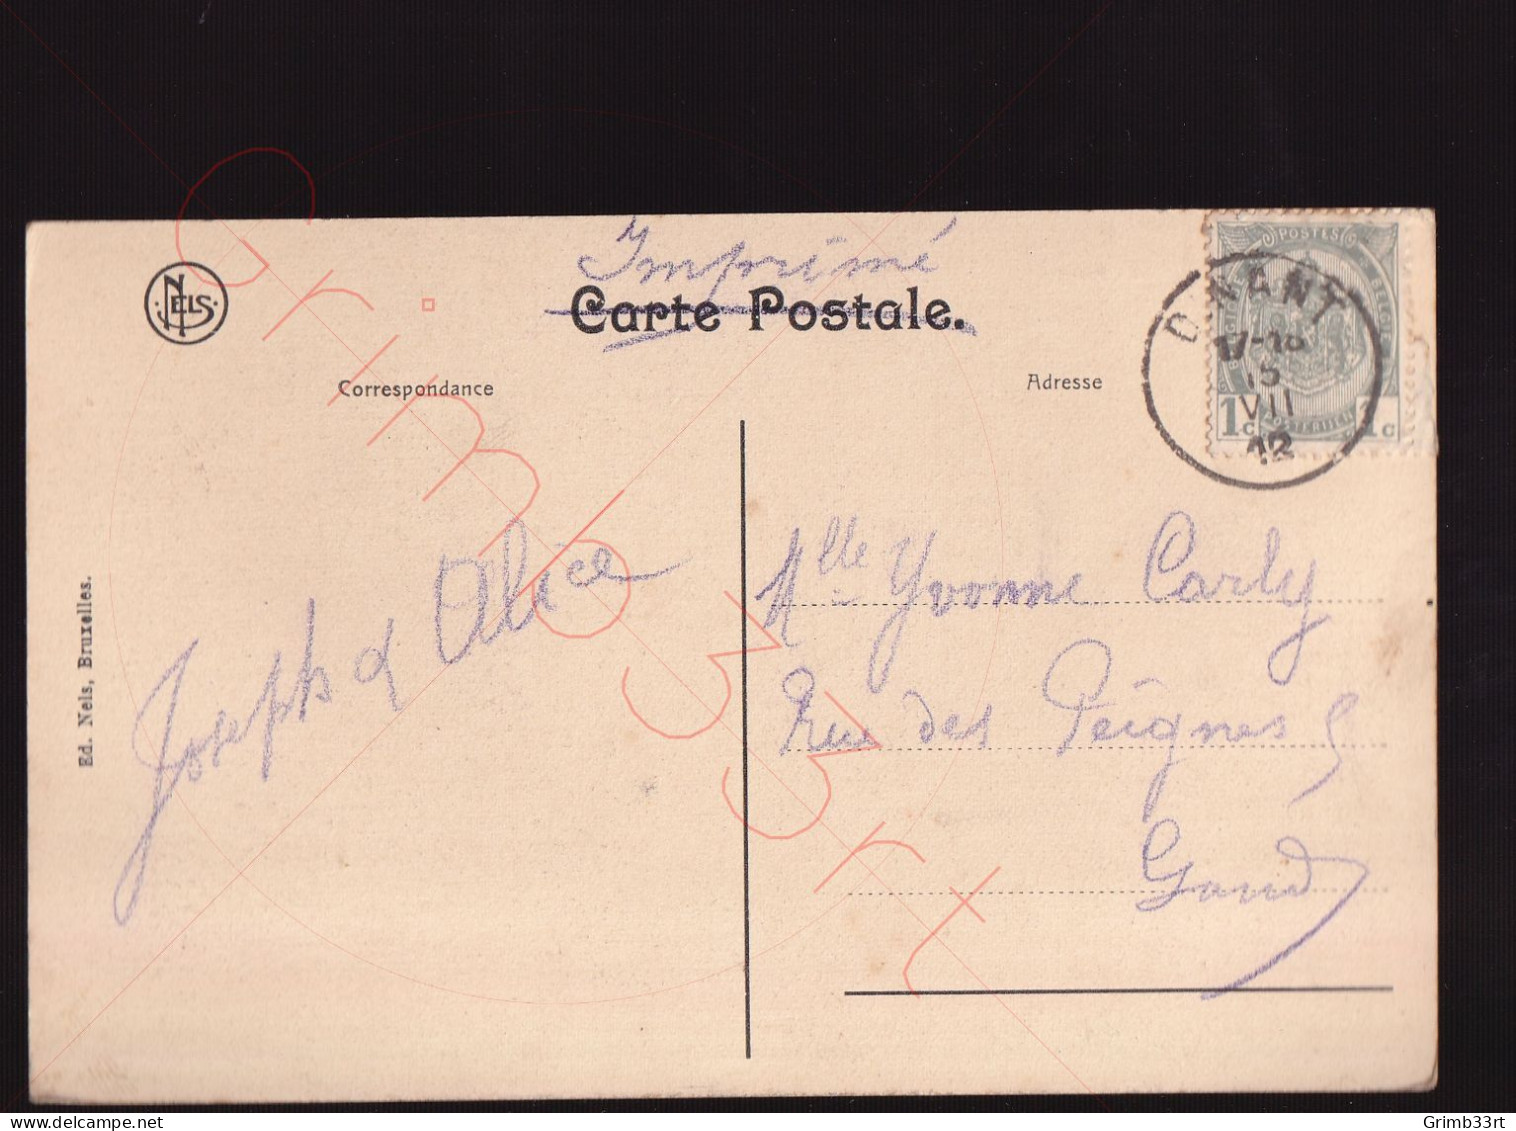 Imprimé
Carte Postale.
NELS
Correspondance
Adresse
POSTES
DINANT
17-18
15
VII
12
1c
POSTERIJEN
1c
Joseph & Alice
Mlle Yvonne Carly
Rue des Peignes
Gand
Ed. Nels, Bruxelles.
Grimb33rt
Grimb33rt